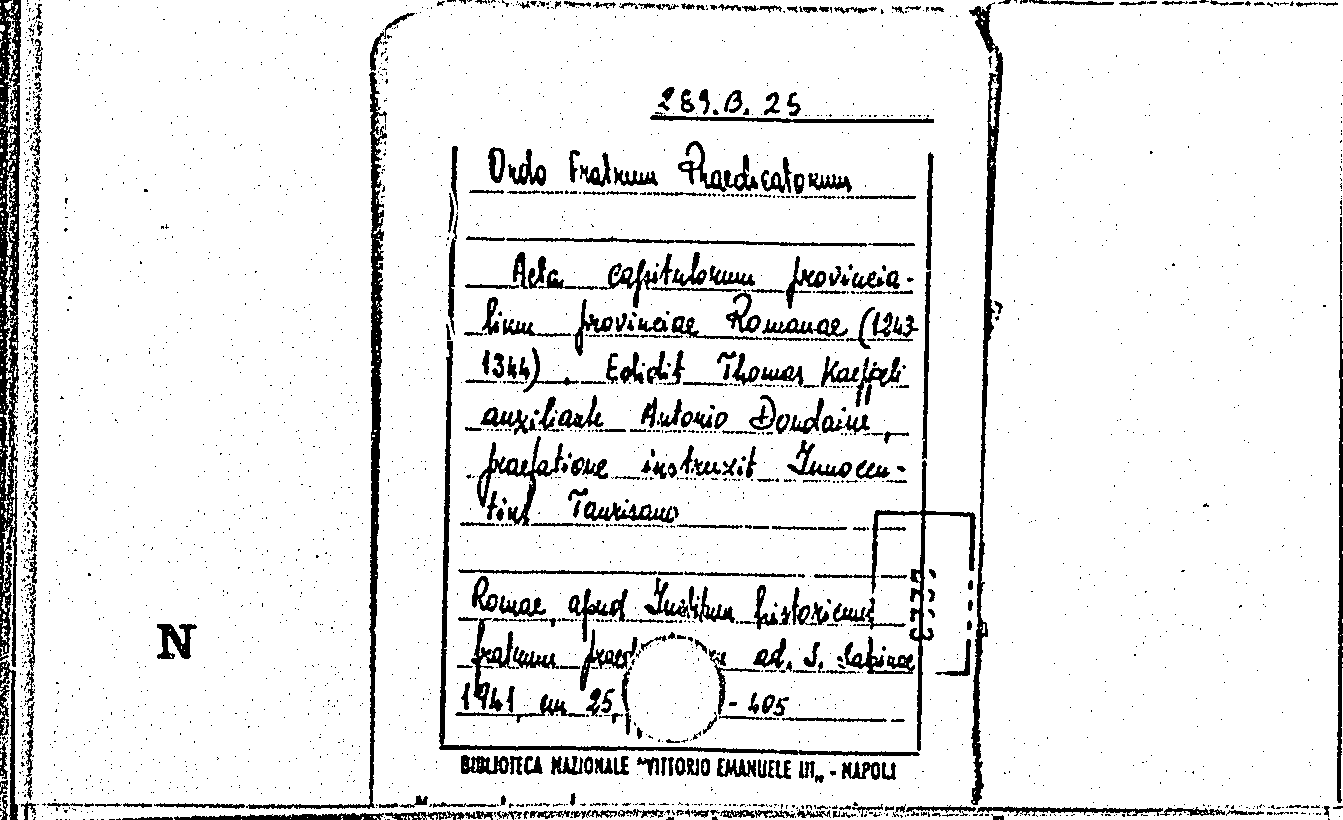 289.B.25
Ordo Fratrum Praedicatorum
Acta capitulorum provincia-
lium provinciae Romanae (1243-
1344). Edidit Thomas Kaeppeli
auxiliante Antonio Dondaine,
praefatione instruxit Innocen-
tius Taurisano
Romae, apud Institum historicum
fratrum ad. S. Sabinae
1941, cm 25, - 405
N
BIBLIOTECA NAZIONALE "VITTORIO EMANUELE III„ - NAPOLI